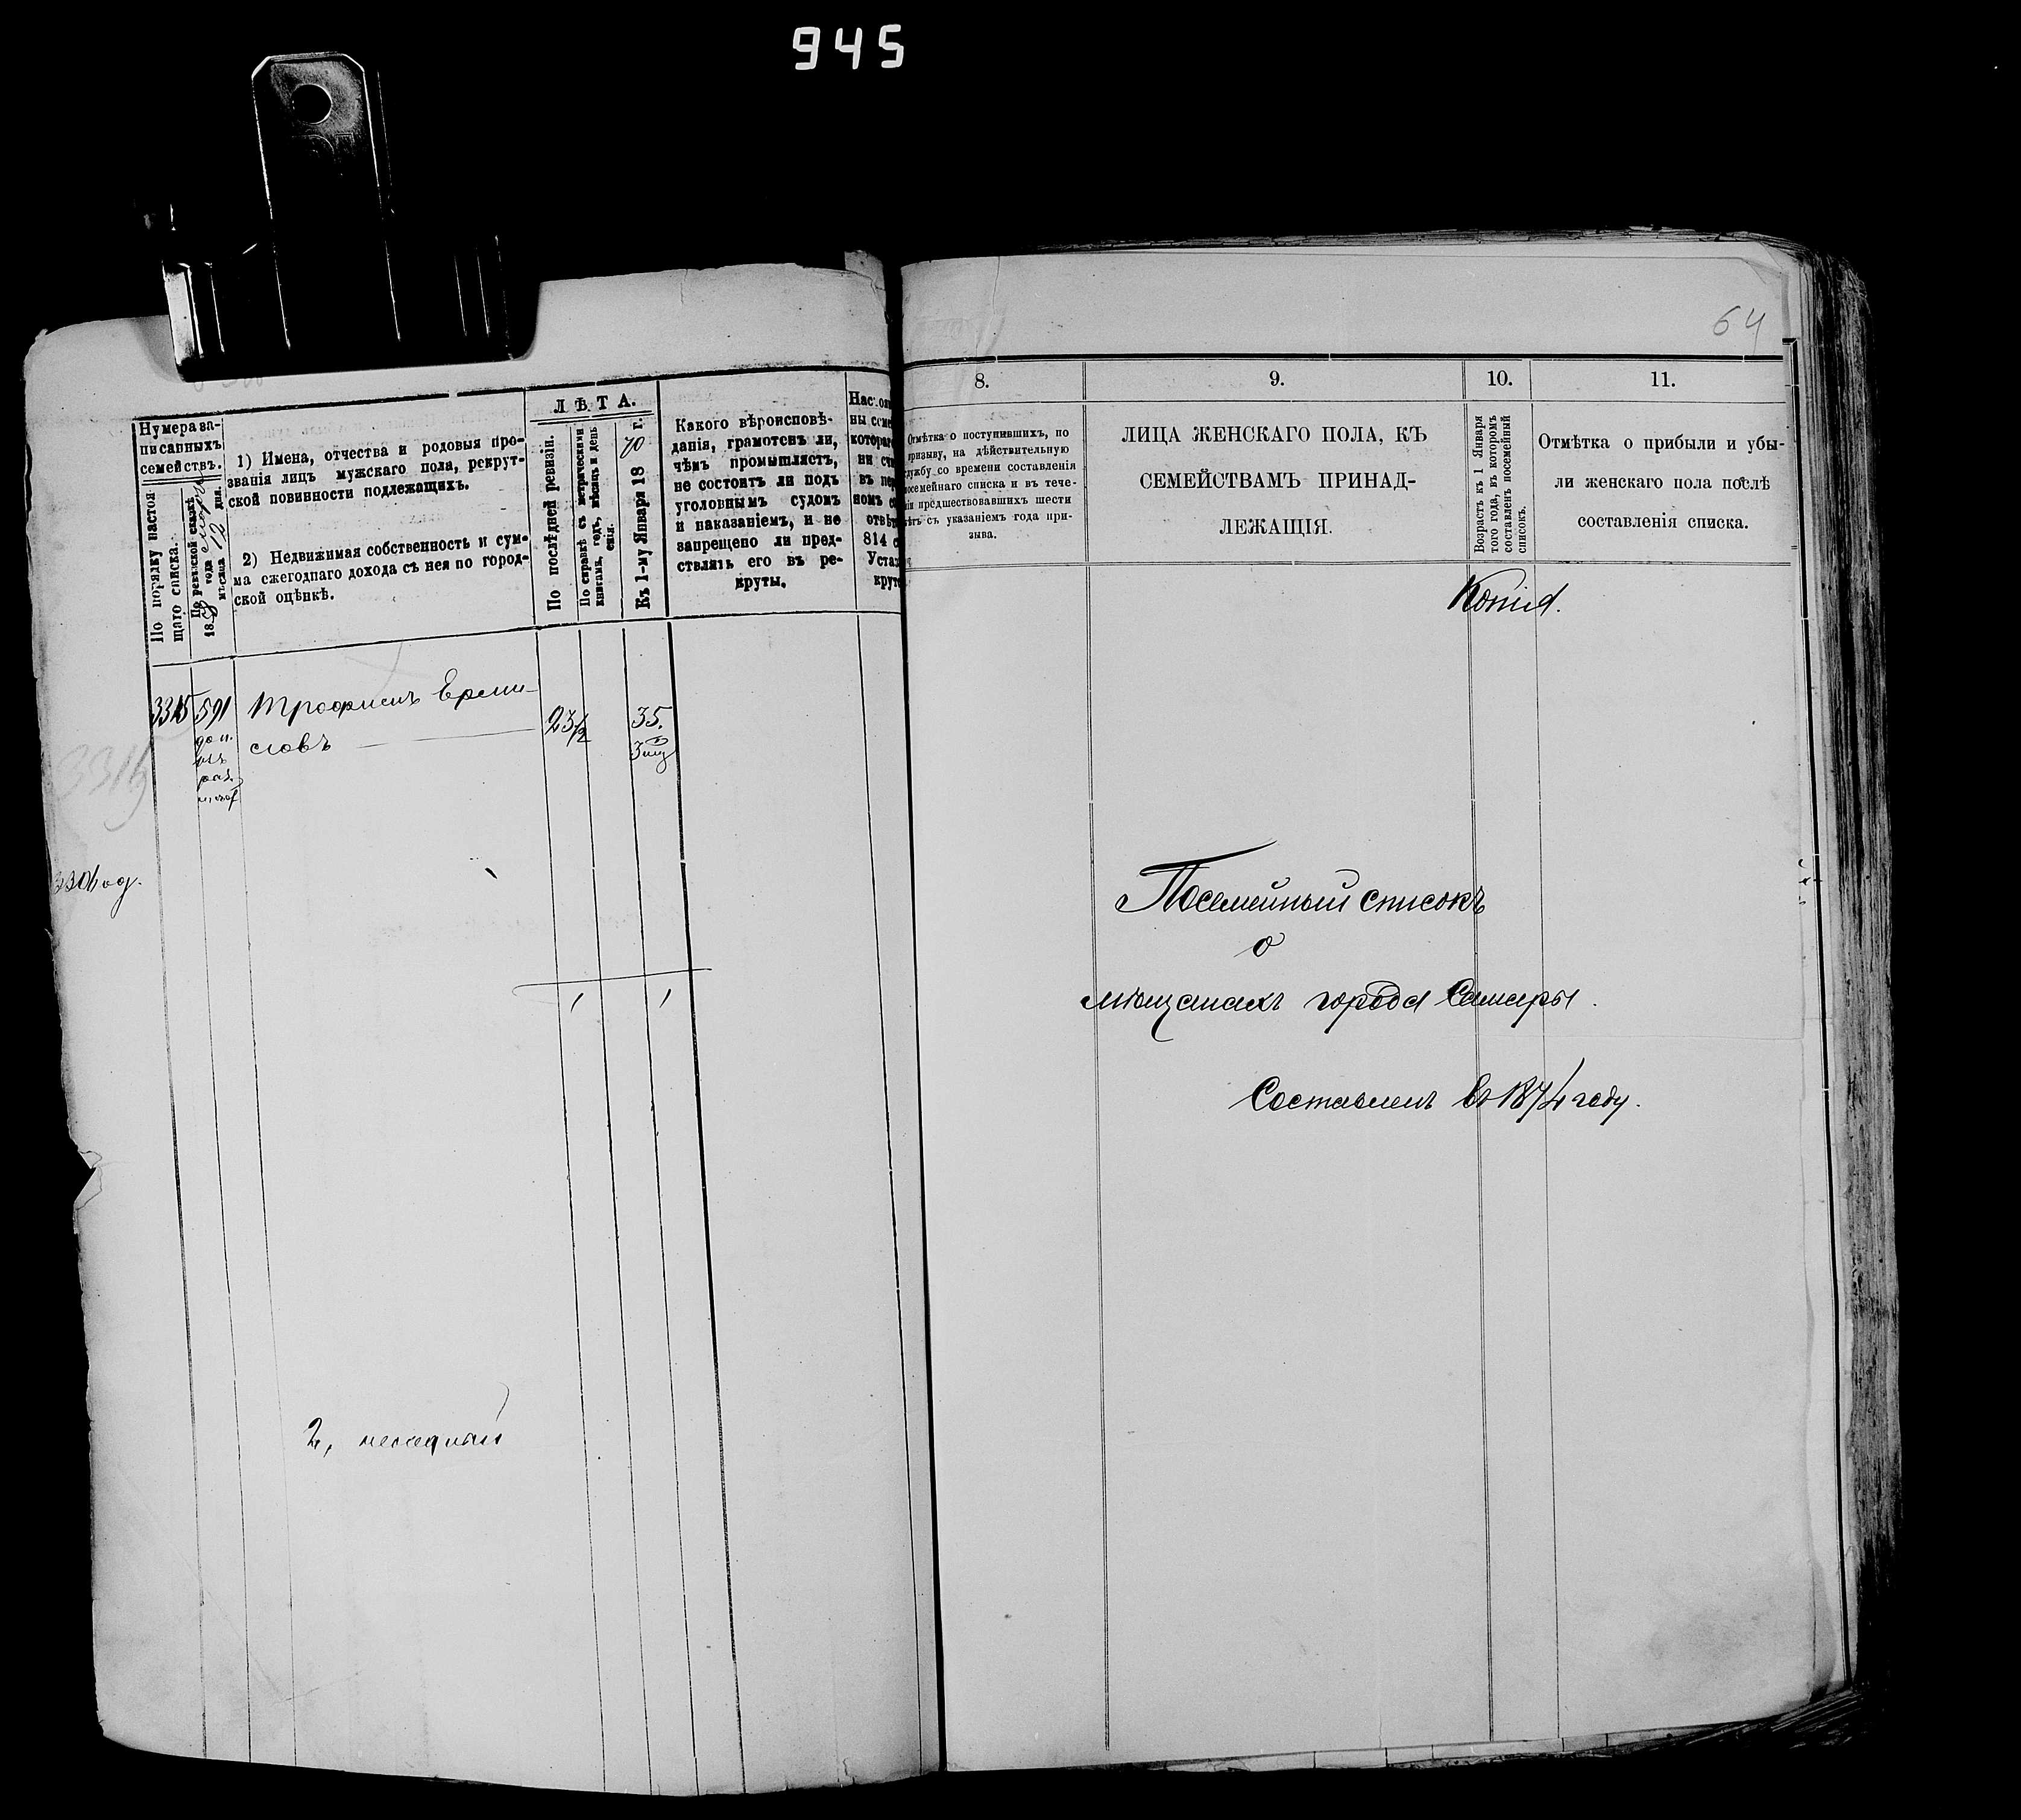 945
64
Нумера за-
писанныхъ
семействъ.
По порядку настоя-
щаго списка.
По ревизской сказкѣ
18 года
мѣсяца 12 дня.
1) Имена, отчества и родовыя про-
званія лицъ мужскаго пола, рекрут-
ской повинности подлежащихъ.
2) Недвижимая собственность и сум-
ма ежегоднаго дохода съ нея по город-
ской оцѣнкѣ.
ЛѢТА.
По послѣдней ревизіи.
По справкѣ съ метрическими
книгами, годъ, мѣсяцъ и день
Къ 1-му Января 1870 г.
Какого вѣроисповѣ-
данія, грамотенъ ли,
чѣмъ промышляетъ,
не состоитъ ли подъ
уголовнымъ судомъ
и наказаніемъ, и не
запрещено ли пред-
ствлять его въ ре-
круты.
3315
591
Трофимъ Ерми-
словъ
23/2
35.
3315
1
1
2,
8.
Отмѣтка о поступившихъ, по
призыву, на дѣйствительную
службу со времени составленія
посемейнаго списка и въ тече-
ніи предшествовавшихъ шести
лѣтъ съ указаніемъ года при-
зыва.
9.
ЛИЦА ЖЕНСКАГО ПОЛА, КЪ
СЕМЕЙСТВАМЪ ПРИНАД-
ЛЕЖАЩІЯ.
10.
Возрастъ къ 1 Января
того года, въ которомъ
составленъ посемейный
списокъ.
11.
Отмѣтка о прибыли и убы-
ли женскаго пола послѣ
составленія списка.
Копія.
Посемейный списокъ
о
мѣщанахъ города Самары.
Составленъ въ 1874 году.